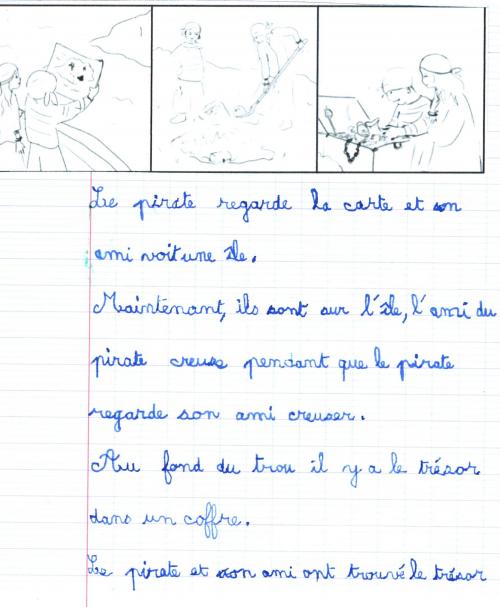 Le pirate regarde la carte et son
ami voit une île.
Maintenant, ils sont sur l'île, l'ami du
pirate creuse pendant que le pirate
regarde son ami creuser.
Au fond du trou il y a le trésor
dans un coffre.
Le pirate et son ami ont trouvé le trésor